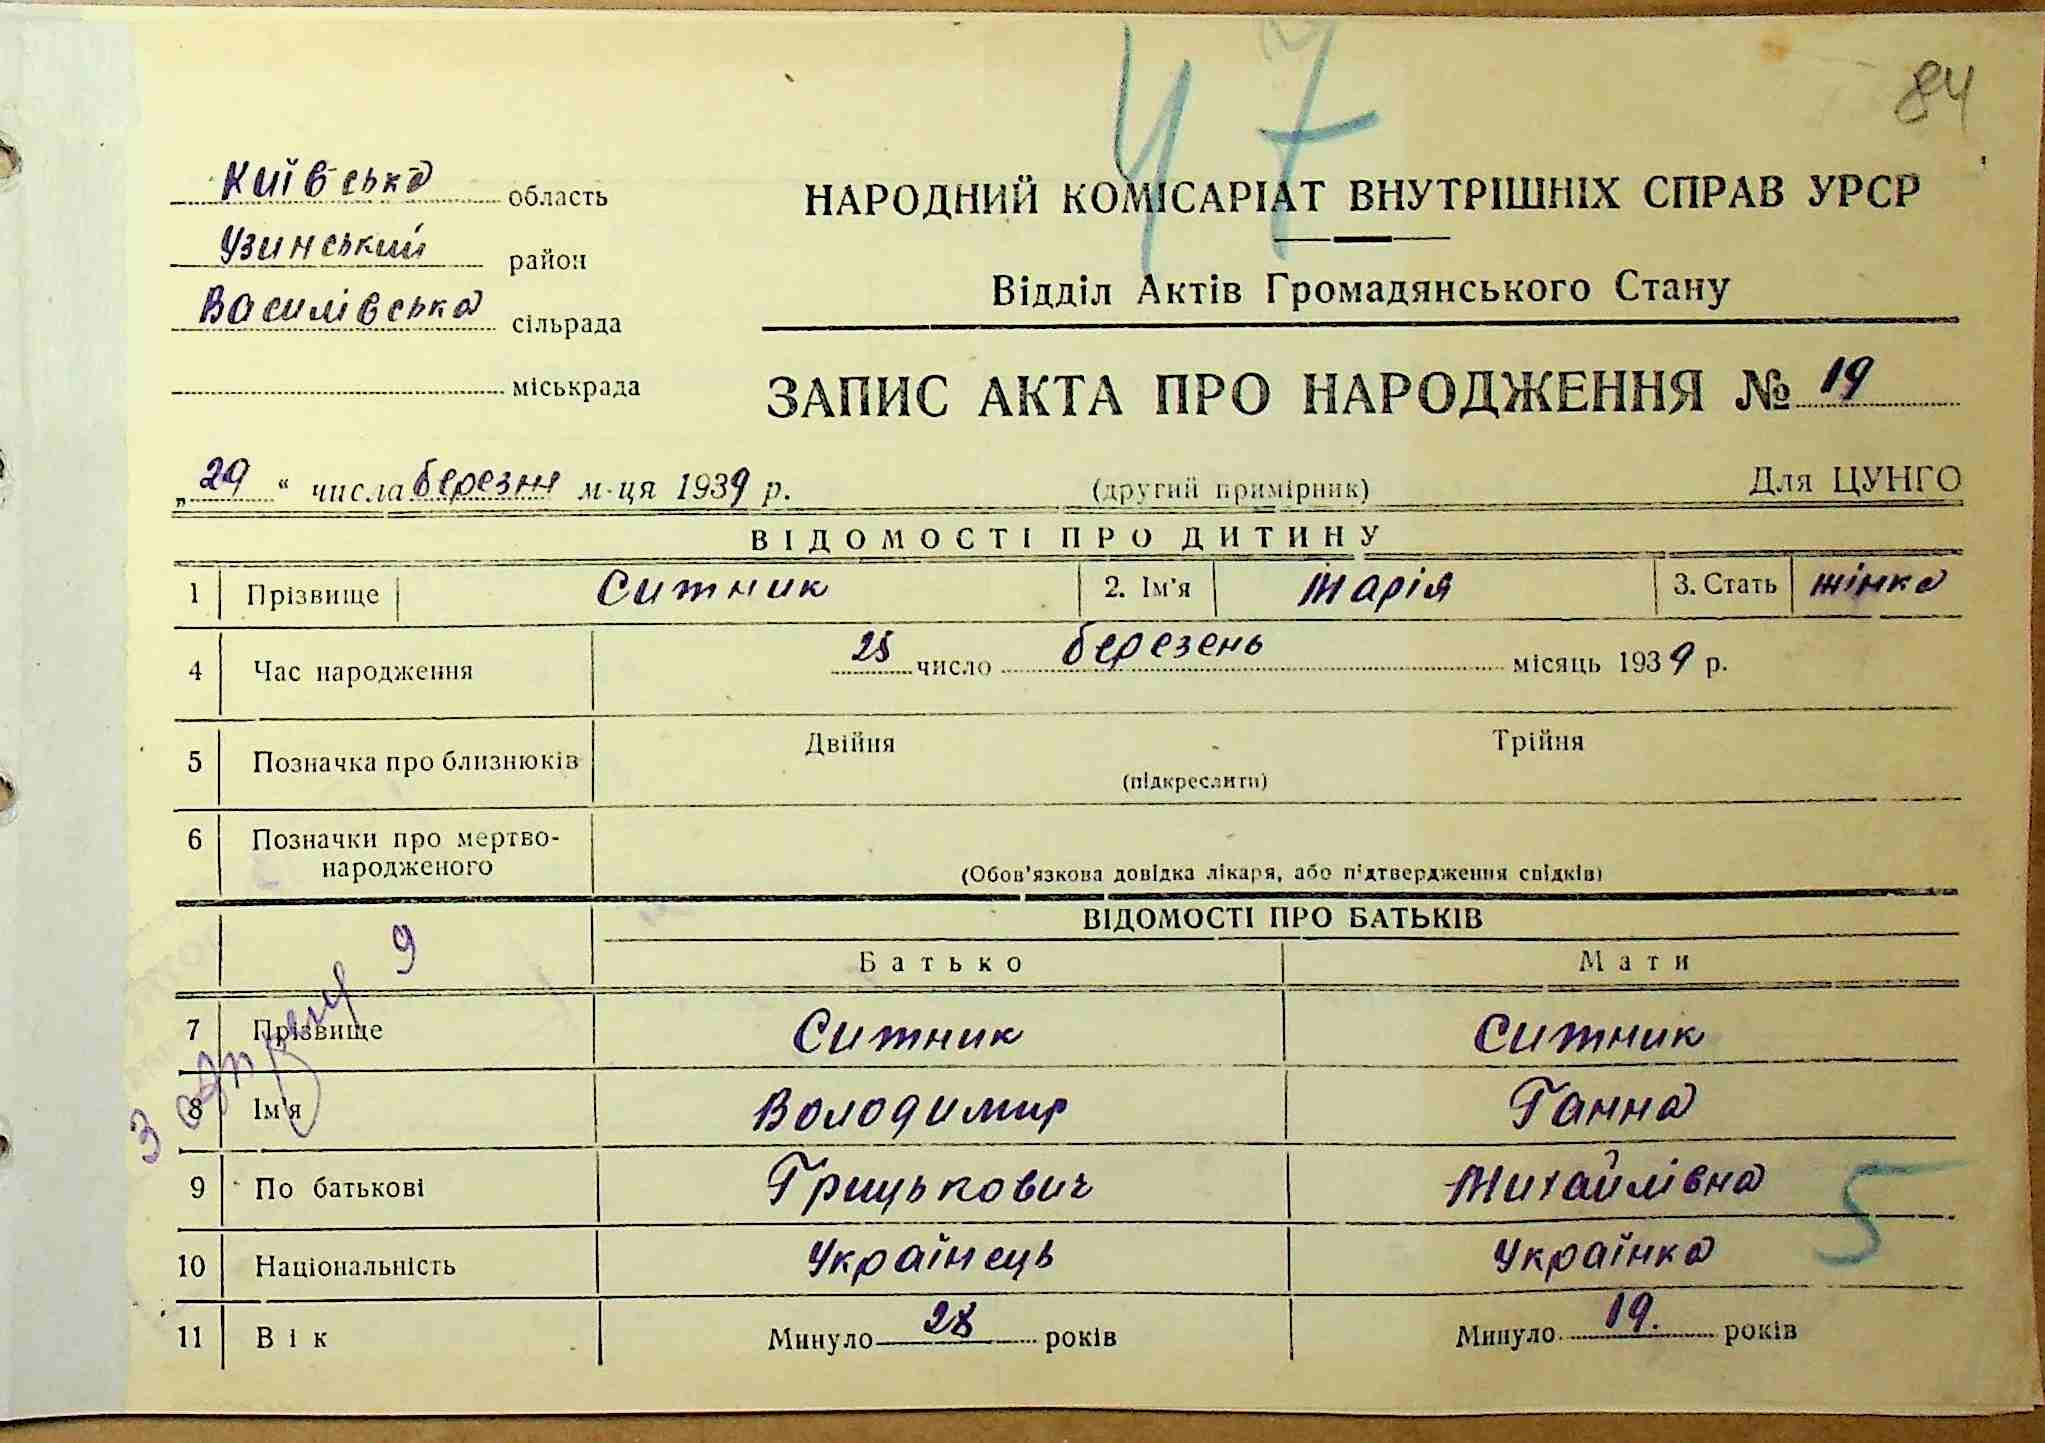 47
84
Київська область
Узинський район
Василівська сільрада
міськрада
НАРОДНИЙ КОМІСАРІАТ ВНУТРІШНІХ СПРАВ УРСР
Відділ Актів Громадянського Стану
ЗАПИС АКТА ПРО НАРОДЖЕННЯ № 19
„29“ числа березня м-ця 1939 р. (другий примірник) Для ЦУНГО
ВІДОМОСТІ ПРО ДИТИНУ
1 Прізвище Ситник 2. Ім'я Марія 3. Стать жінка
4 Час народження 25 число березень місяць 1939 р.
5 Позначка про близнюків Двійня Трійня
(підкреслити)
6 Позначки про мертво-
народженого
(Обов'язкова довідка лікаря, або підтвердження свідків)
ВІДОМОСТІ ПРО БАТЬКІВ
9
Батько Мати
7 Прізвище Ситник Ситник
8 Ім'я Володимир Ганна
9 По батькові Грицькович Михайлівна
5
10 Національність Українець Українка
11 Вік Минуло 28 років Минуло 19. років